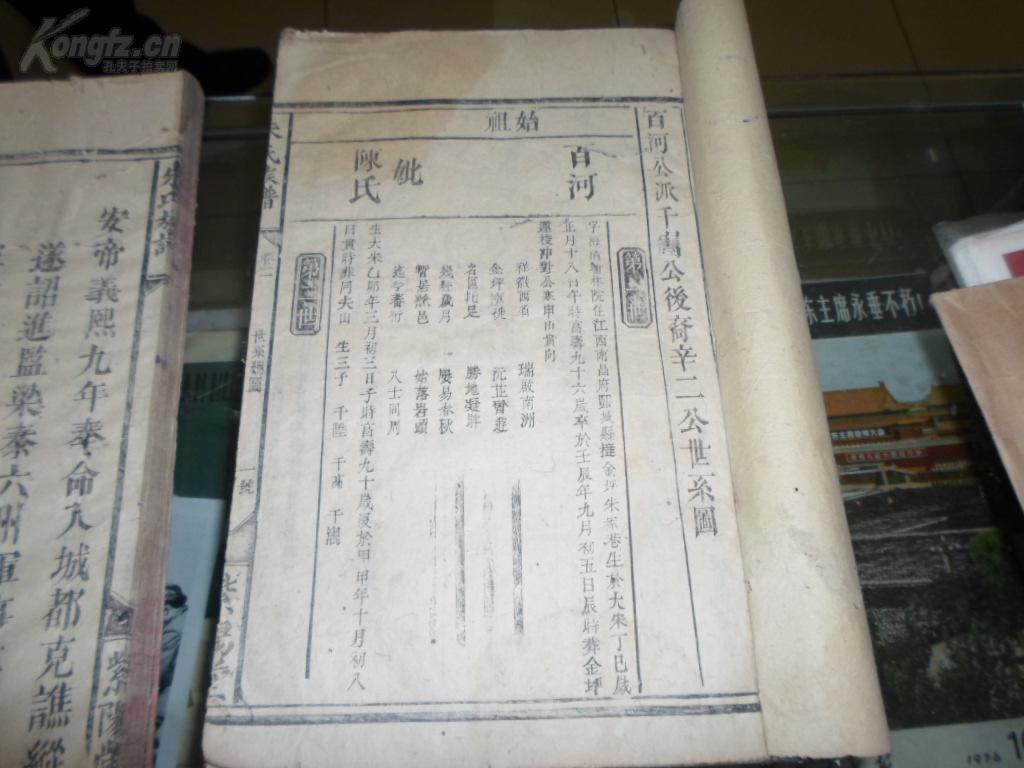 百河公派千崗公後裔辛二公世系圖
始祖
百河
妣
陳氏
第一世
字海清翰林院住江西南昌府豐城縣槎金坪朱家巷生於大朱丁巳歲
正月十八日午時富壽九十六歲卒於壬辰年九月初五日辰時葬金坪
蓮枝冲對公寨申山寅向
祥徵西眉 瑞啟南洲
金坪寓 沅芷曾遊
名區托足 勝地凝眸
幾經歲月 屢易春秋
暫居然邑 始落岩頭
迄今蕃衍 八士同周
生大朱乙卯年三月初三日子時富壽九十歲歿於甲申年十月初八
日寅時葬同夫山 生三子 千陸 千崗 千
朱氏族譜
卷二
世系總圖
一號
紫陽堂
朱氏族譜
安帝義熙九年奉命入城都克譙縱
遂詔進監梁秦六州軍事
紫陽堂
东主席永垂不朽!
1976
Kongfz.cn
孔夫子拍卖网